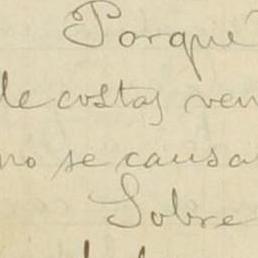 Porqué
de costas ven
no se causa
Sobre